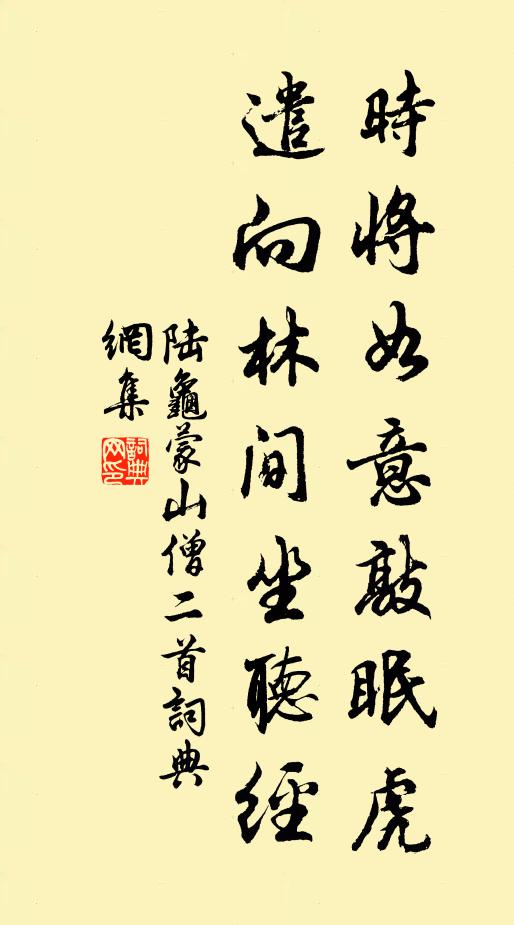 時將如意敲眠虎
遣向林間坐聽經
陆龜蒙山僧二首詞典
網集
詞典
网印